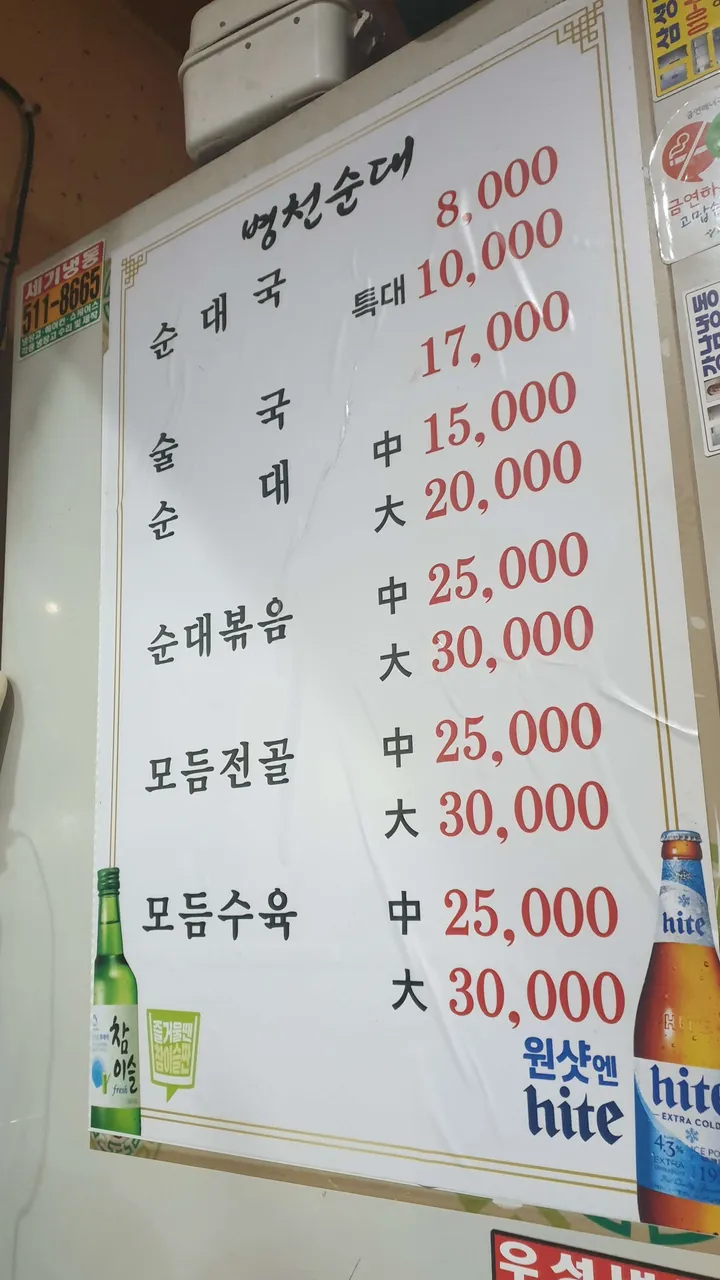 병천순대
순대국 8,000
특대 10,000
술국 17,000
순대 中 15,000
大 20,000
순대볶음 中 25,000
大 30,000
모듬전골 中 25,000
大 30,000
모듬수육 中 25,000
大 30,000
참이슬
fresh
즐거울땐
참이슬땐
원샷엔
hite
hite
hite
EXTRA COLD
4.3%
EXTRA
세기냉동
511-8665
금연하
고맙습
강남냉동
삼성